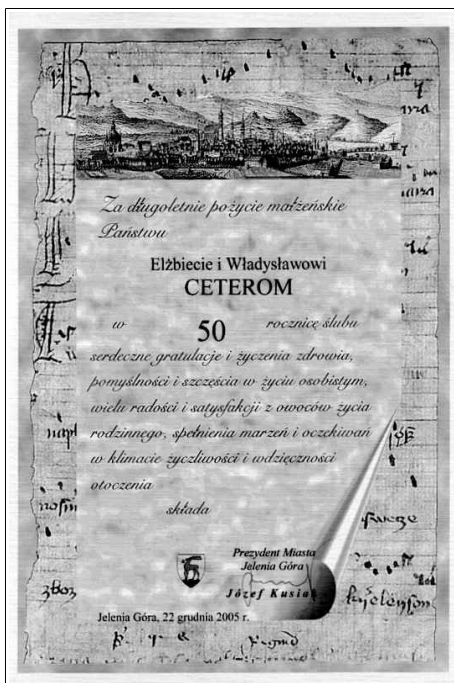 Za długoletnie pożycie małżeńskie
Państwu
Elżbiecie i Władysławowi
CETEROM
w 50 rocznicę ślubu
serdeczne gratulacje i życzenia zdrowia,
pomyślności i szczęścia w życiu osobistym,
wielu radości i satysfakcji z owoców życia
rodzinnego, spełnienia marzeń i oczekiwań
w klimacie życzliwości i wdzięczności
otoczenia
składa
Prezydent Miasta
Jelenia Góra
Józef Kusiak
Jelenia Góra, 22 grudnia 2005 r.